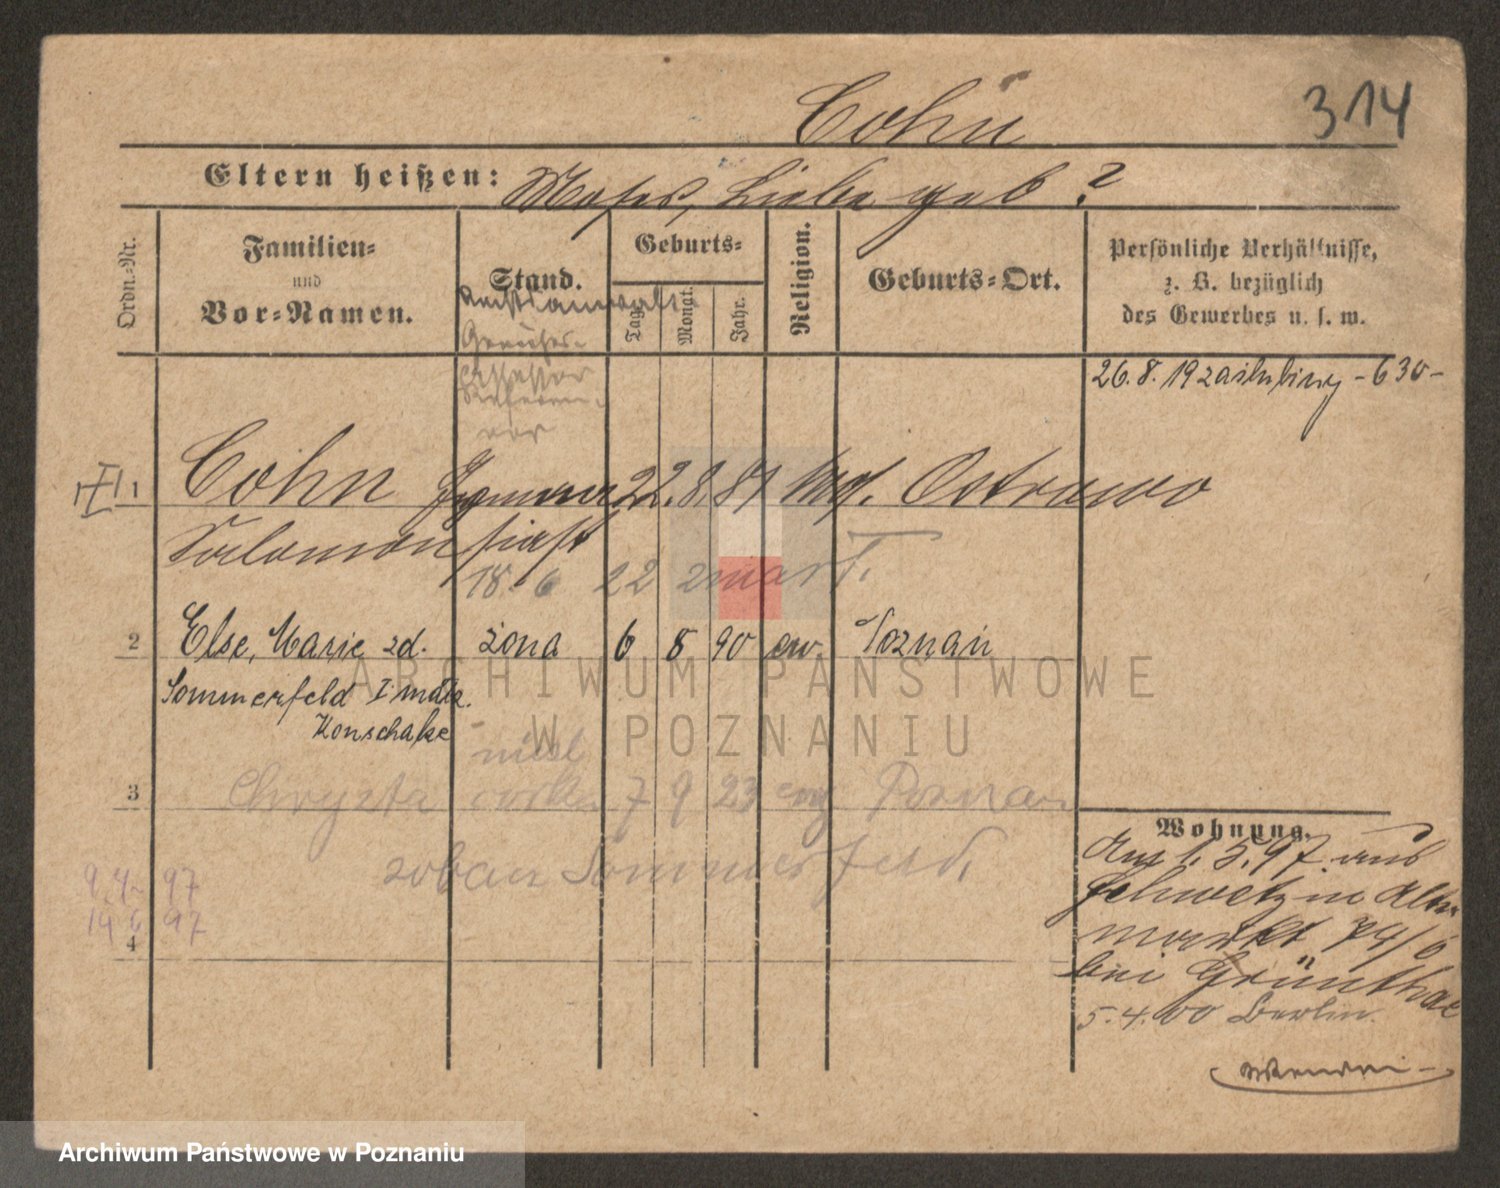 Cohn
314
Eltern heißen: Moses, Liebe geb ?
Ordn.-Nr.
Familien-
und
Vor-Namen.
Stand.
Geburts-
Tag.
Monat.
Jahr.
Religion.
Geburts-Ort.
Persönliche Verhältnisse,
z. B. bezüglich
des Gewerbes u. s. w.
Rechtsanwalt
Gerichts-
Assessor
Referen-
dar
26.8.19 -630-
1
Cohn 22. 8. 81 mos. Ostrowo
Salomon
18. 6 22 zmarł.
2 Else, Marie zd. żona 6 8 90 ew. Poznań
Sommerfeld I małż.
Konschake
3 Chrysta córka 7 9 23 ewg Poznań
zobacz Sommerfeld.
4
9 4 97
14 6 97
Wohnung.
1. 5. 97 aus
in Alter
markt
bei Grünthal
5. 4. 00 Berlin.
ARCHIWUM PAŃSTWOWE
W POZNANIU
Archiwum Państwowe w Poznaniu